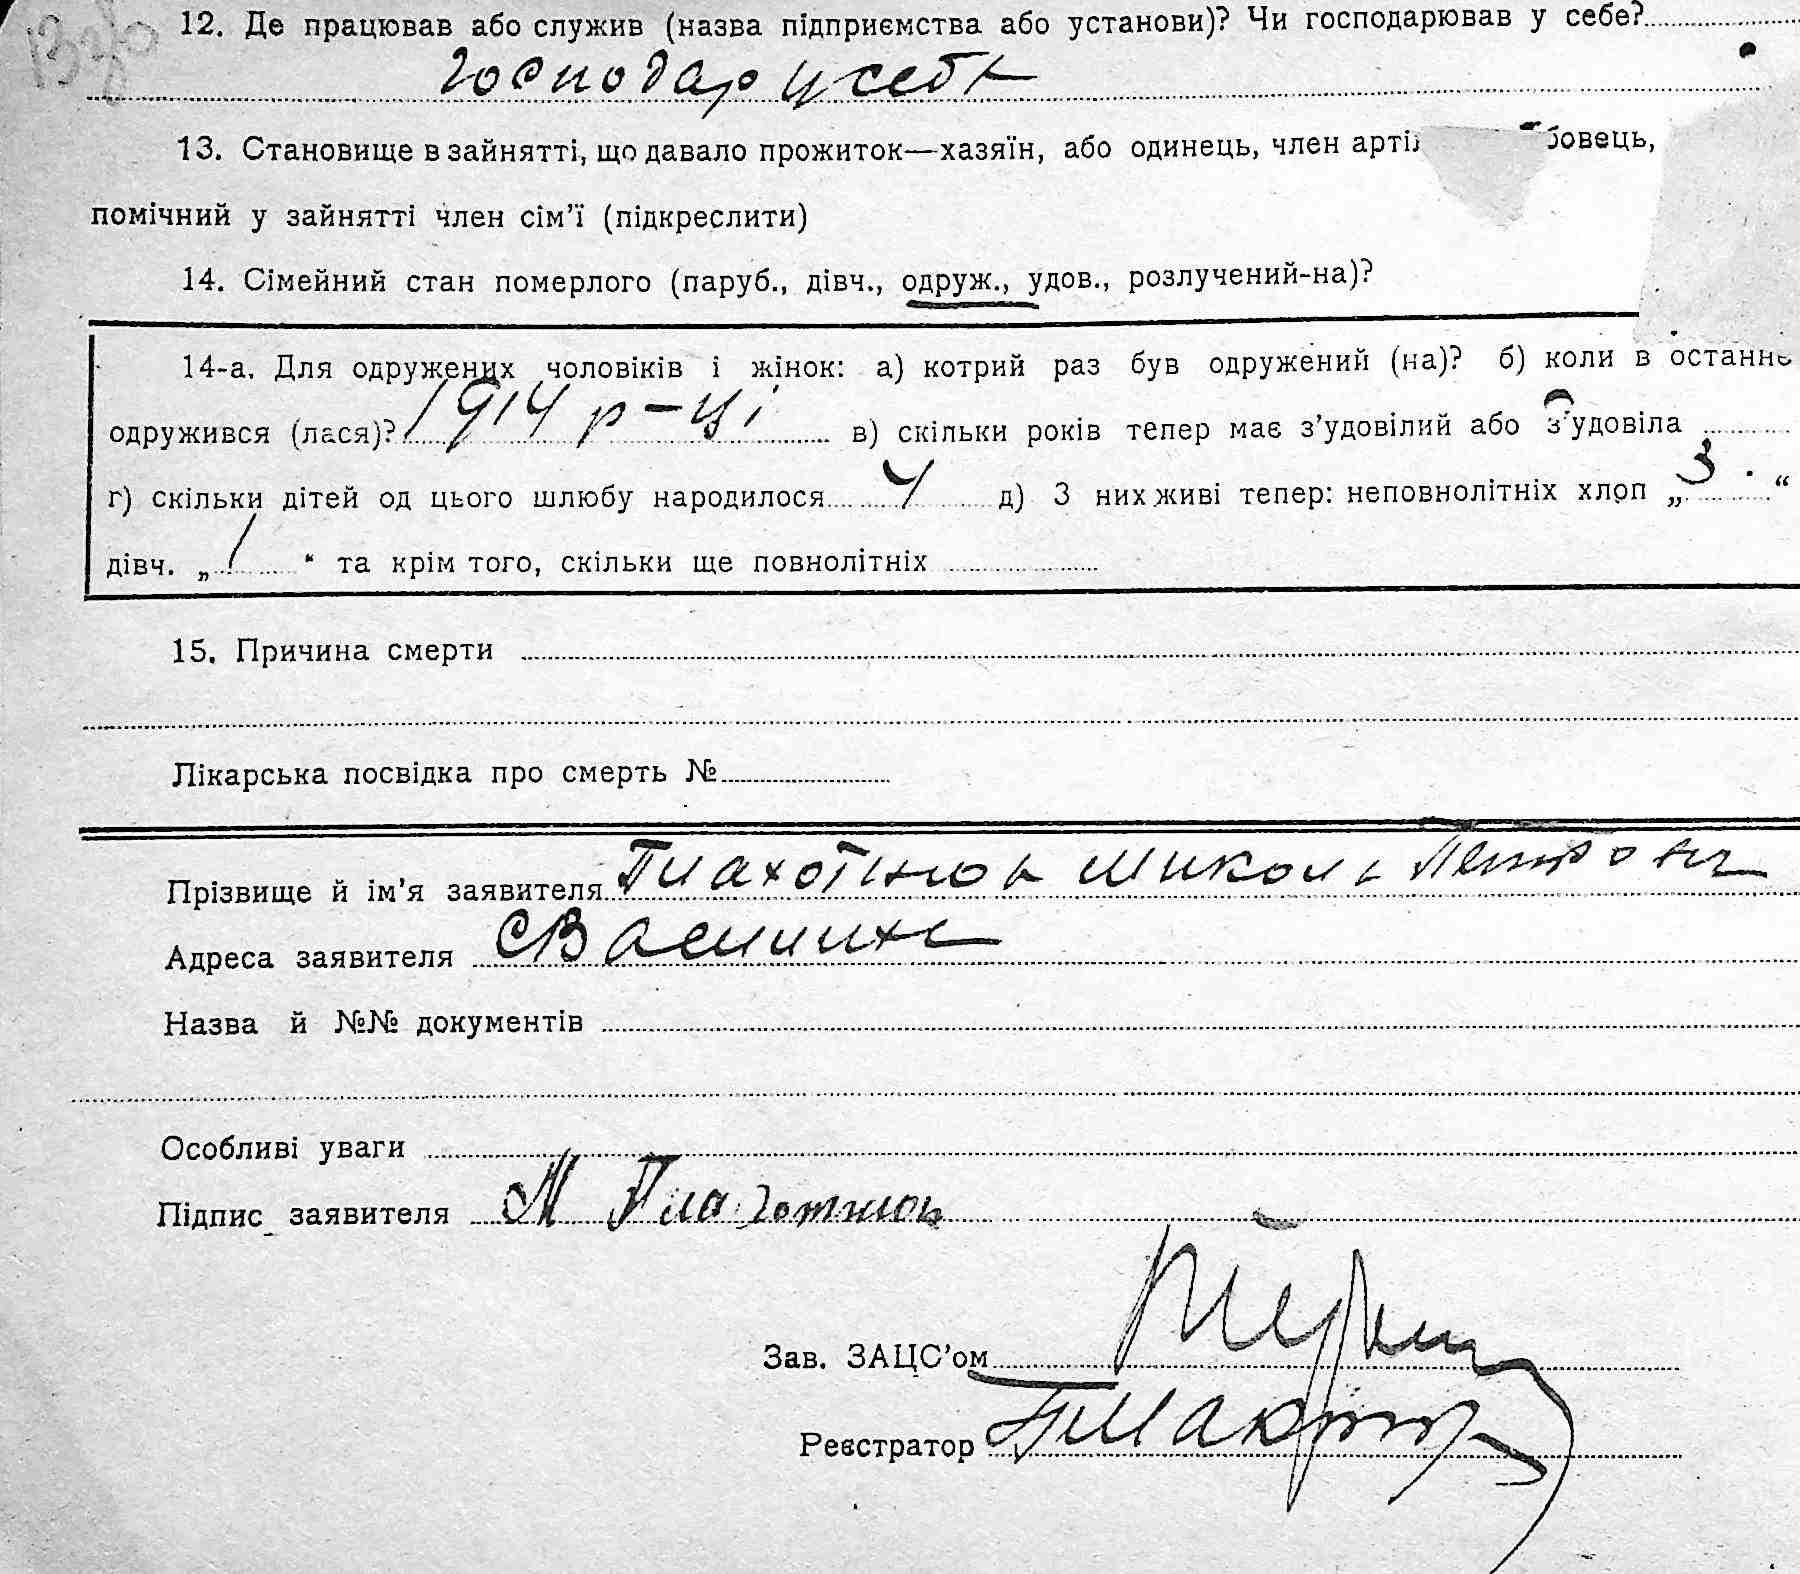 12. Де працював або служив (назва підприємства або установи)? Чи господарював у себе?
господар у себе
13. Становище в зайнятті, що давало прожиток—хазяїн, або одинець, член арті бовець,
помічний у зайнятті член сім’ї (підкреслити)
14. Сімейний стан померлого (паруб., дівч., одруж., удов., розлучений-на)?
14-а. Для одружених чоловіків і жінок: а) котрий раз був одружений (на)? б) коли в останнє
одружився (лася)? 1914 р-ці в) скільки років тепер має з’удовілий або з’удовіла
г) скільки дітей од цього шлюбу народилося 4 д) З них живі тепер: неповнолітніх хлоп „ 3 “
дівч. „ 1 “ та крім того, скільки ще повнолітніх
15. Причина смерти
Лікарська посвідка про смерть №
Прізвище й ім’я заявителя Плахотнюк Микола Петрович
Адреса заявителя
Назва й №№ документів
Особливі уваги
Підпис заявителя М Плахотнюк
Зав. ЗАЦС’ом
Реєстратор